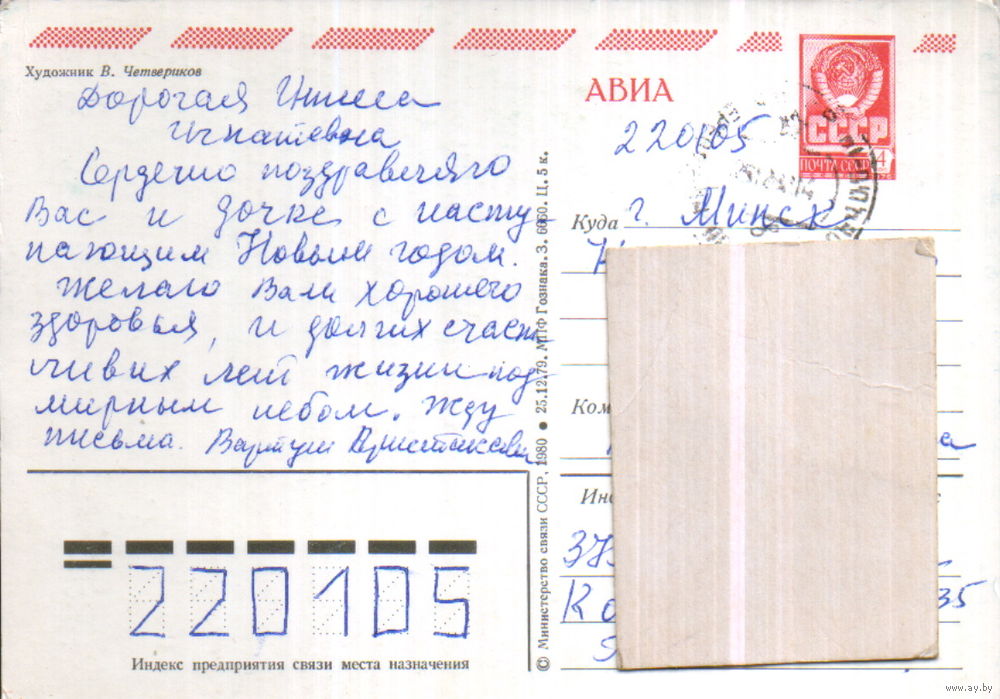 Художник В. Четвериков
Дорогая
Игнатевна
Сердечно поздравляю
Вас и дочке с насту-
пающим Новым годом.
Желаю Вам хорошего
здоровья, и долгих счаст
ливих лет жизни под
мирным небом. Жду
письма.
АВИА
СССР
ПОЧТА СССР
4
220105
Куда г. Минск
Ком
Ин
37
Ко
35
© Министерство связи СССР, 1980 ● 25.12.79. МПФ Гознака. З. 6660. Ц. 5 к.
220105
Индекс предприятия связи места назначения
www.ay.by